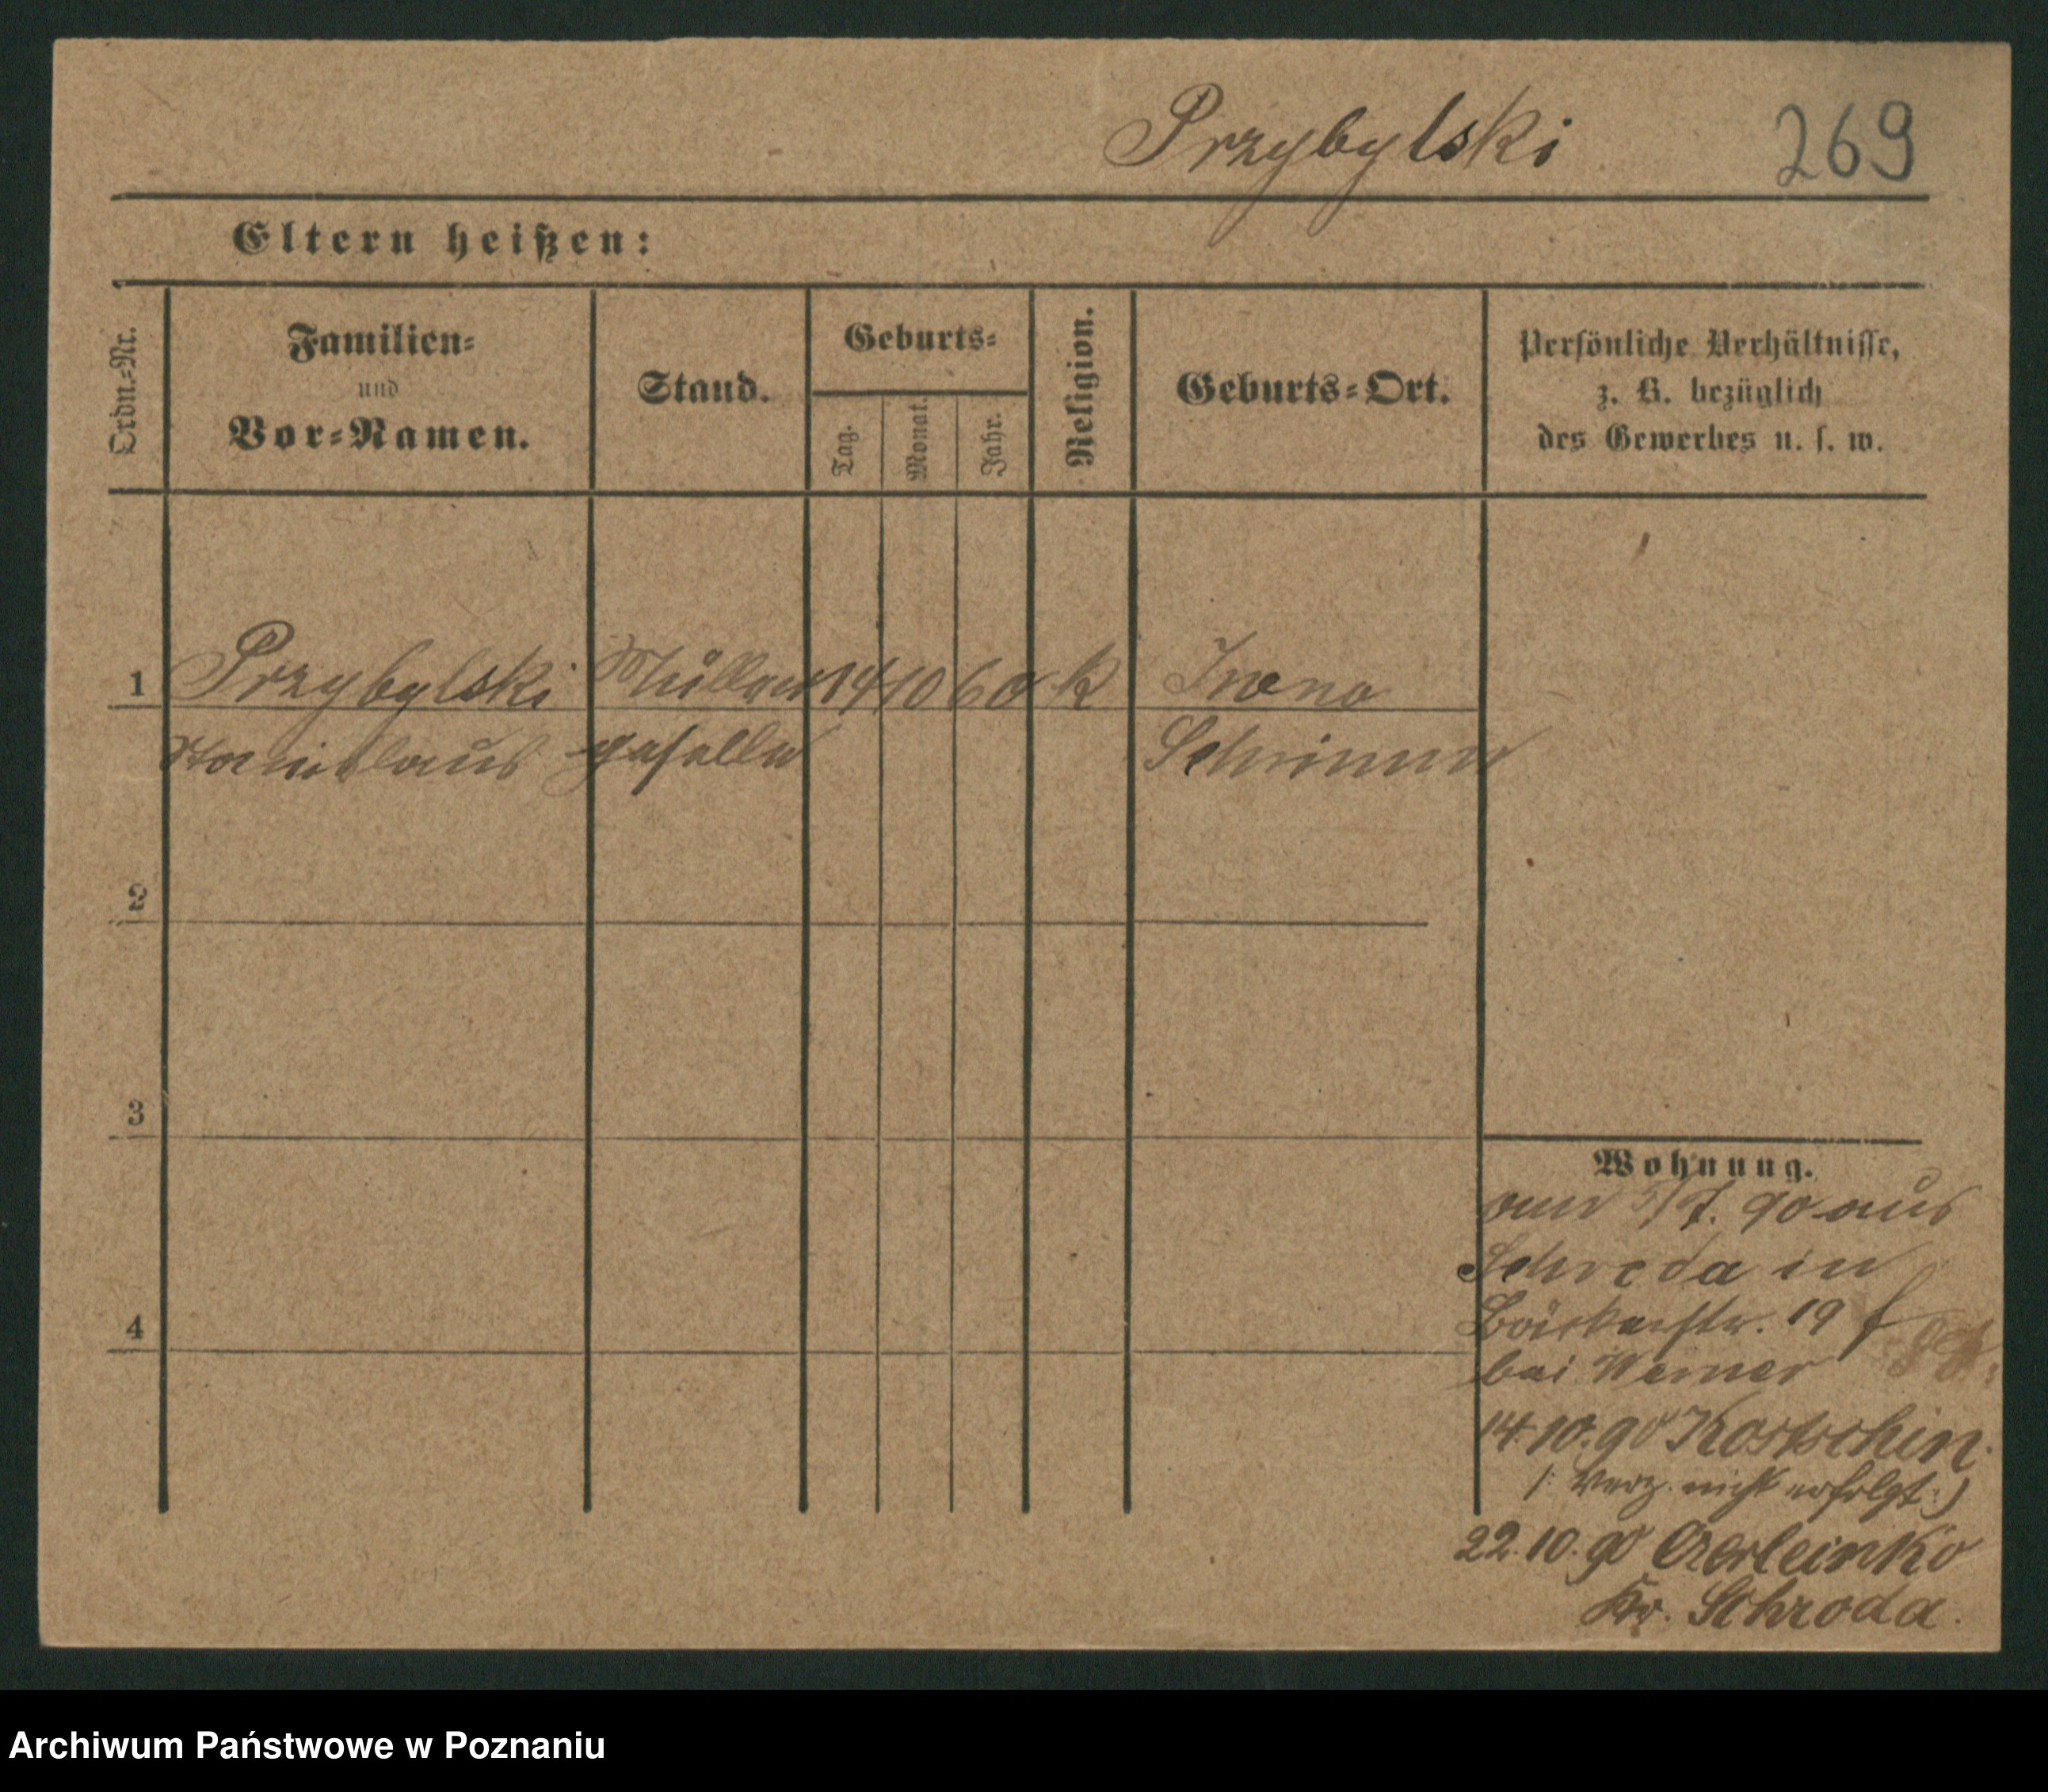 Przybylski 269
Eltern heißen:
Ordn.-Nr.
Familien-
und
Vor-Namen.
Stand.
Geburts-
Tag.
Monat.
Jahr.
Religion.
Geburts-Ort.
Persönliche Verhältnisse,
z. B. bezüglich
des Gewerbes u. s. w.
1 Przybylski Müller 14 10 60 k Iwno
Stanislaus geselle Schrimm
2
3
4
Wohnung.
am 5/7. 90 aus
Schroda in
Bäckerstr. 19
bei Werner
14.10.90 Kostschin.
(: Verz. nicht erfolgt :)
22.10.90 Czerleinko
Kr. Schroda.
Archiwum Państwowe w Poznaniu